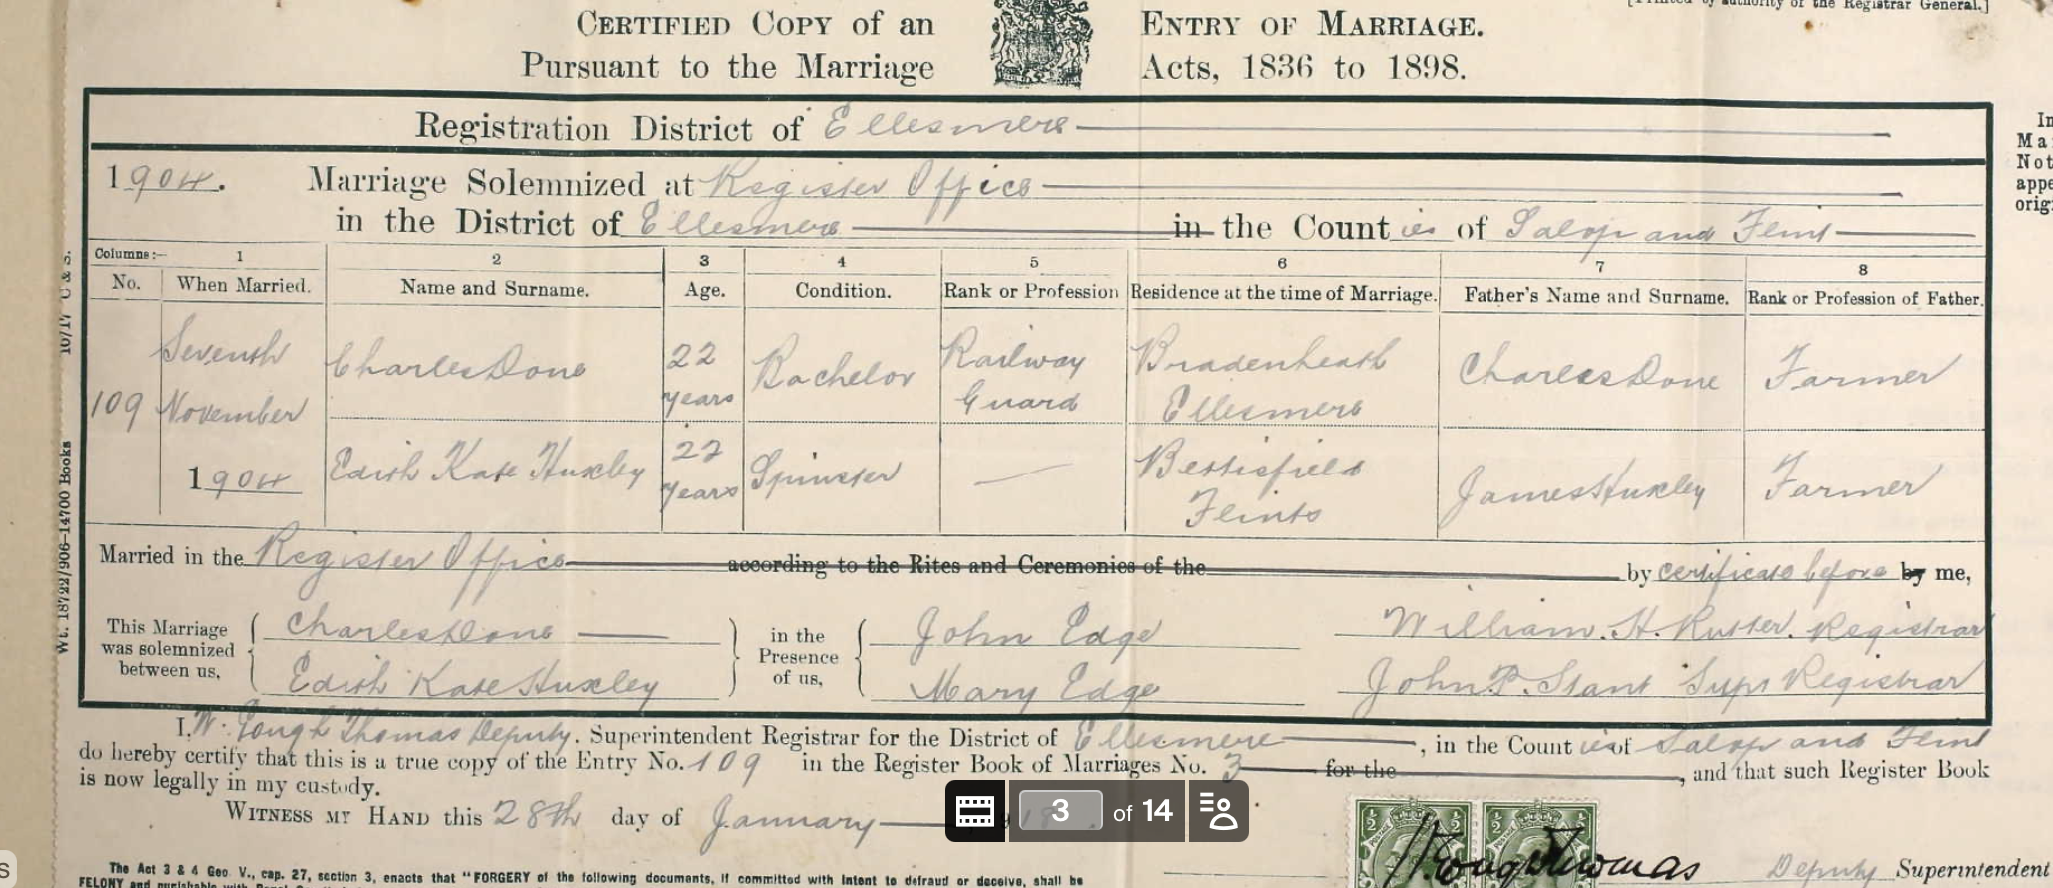 [Printed by authority of the Registrar General.]
CERTIFIED COPY of an ENTRY OF MARRIAGE.
Pursuant to the Marriage Acts, 1836 to 1898.
Registration District of Ellesmere
1904. Marriage Solemnized at Register Office
in the District of Ellesmere in the Counties of Salop and Flint
Columns:— 1 2 3 4 5 6 7 8
No. When Married. Name and Surname. Age. Condition. Rank or Profession Residence at the time of Marriage. Father's Name and Surname. Rank or Profession of Father.
109 Seventh November 1904 Charles Done 22 years Bachelor Railway Guard Bradenheath Ellesmere Charles Done Farmer
Edith Kate Huxley 22 years Spinster — Bettisfield Flints James Huxley Farmer
Married in the Register Office according to the Rites and Ceremonies of the by certificate before by me,
This Marriage was solemnized between us, Charles Done in the Presence of us, John Edge William. H. Rutter. Registrar
Edith Kate Huxley Mary Edge John P. Stant Supt Registrar
I, W. Gough Thomas Deputy. Superintendent Registrar for the District of Ellesmere, in the Counties of Salop and Flint
do hereby certify that this is a true copy of the Entry No. 109 in the Register Book of Marriages No. 3 for the, and that such Register Book
is now legally in my custody.
WITNESS MY HAND this 28th day of January
3 of 14
Deputy Superintendent
The Act 3 & 4 Geo V., cap. 27, section 3, enacts that "FORGERY of the following documents, if committed with intent to defraud or deceive, shall be
Wt. 18722/906—14700 Books 10/17 U & S.
In
Ma
Not
appe
orig